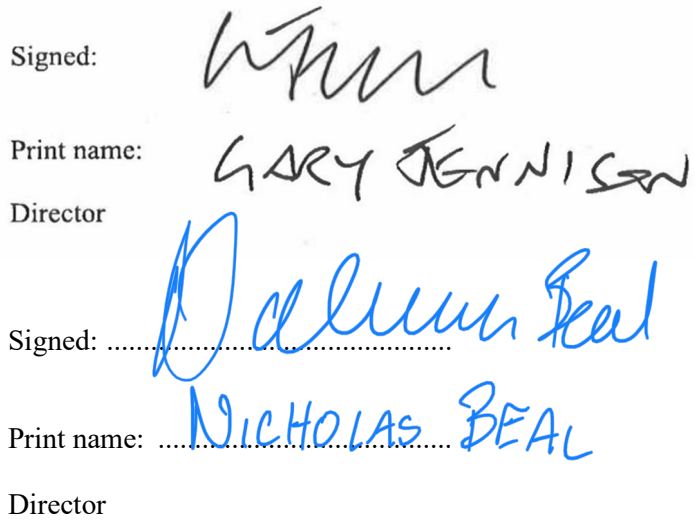 Signed:
Print name: GARY JENNISON
Director
Signed: .................................................. Beal
Print name: .......................................... NICHOLAS BEAL
Director